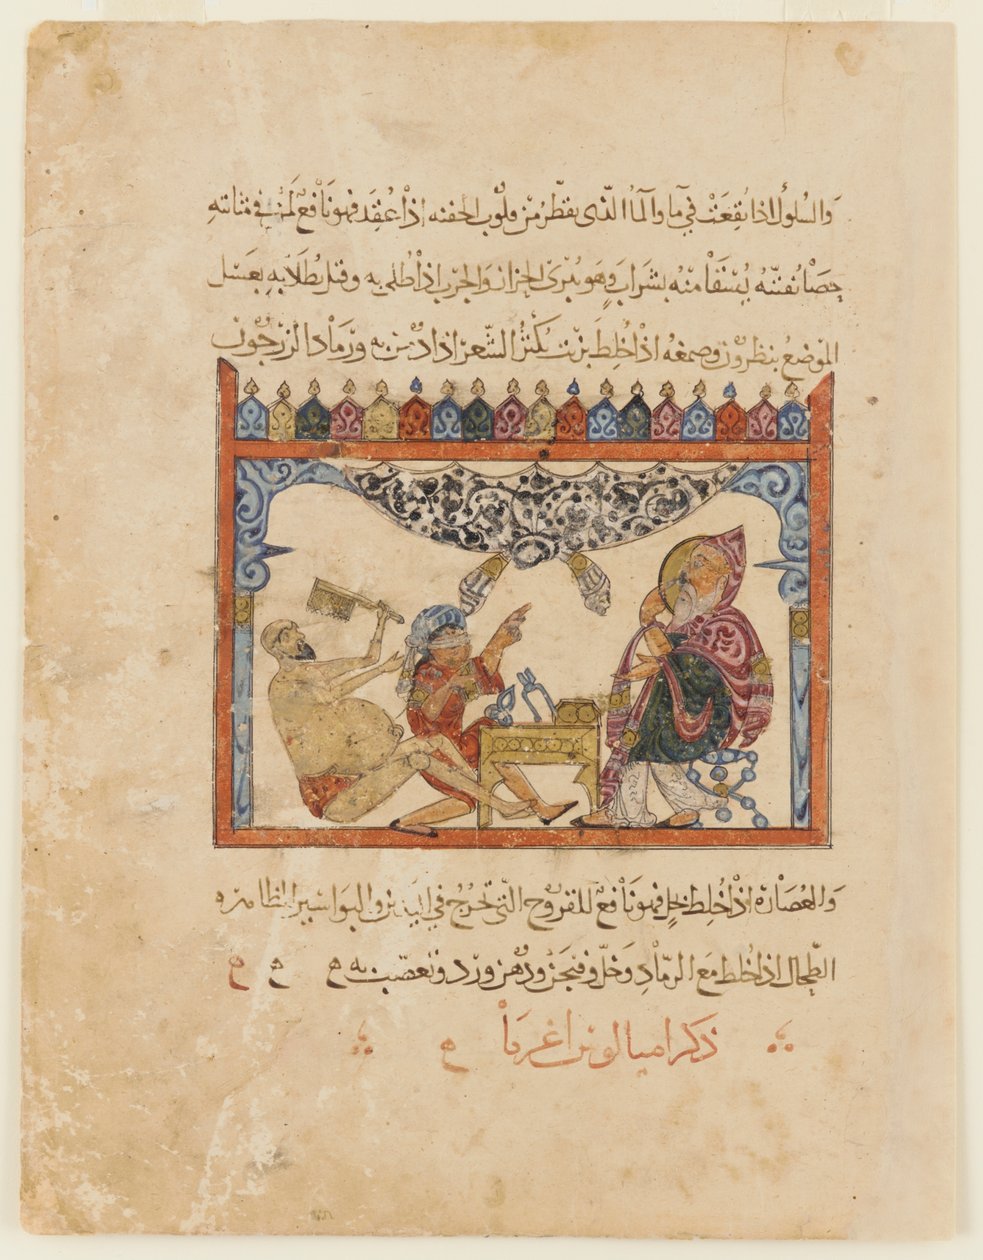 والسلول اذا نقعت في ما والما الذي يقطر من قلوب الجفنه اذا عقد فهو نافع لمن في مثانته
حصا تفتته يستقا منه بشراب وهو يبرى الحزاز والجرب اذا طلي به وقبل يطلا به يغسل
الموضع بنظرون وصمغه اذا خلط بزيت يكثر الشعر اذا ادهن به ورماد الزرجون
والعصارة اذا خلط بخل فهو نافع للقروح التي تخرج في والبواسير الظاهره
الطحال اذا خلط مع الرماد وخل وفيجن ودهن ورد وتعصب به
ذكر امبالوس اغريا